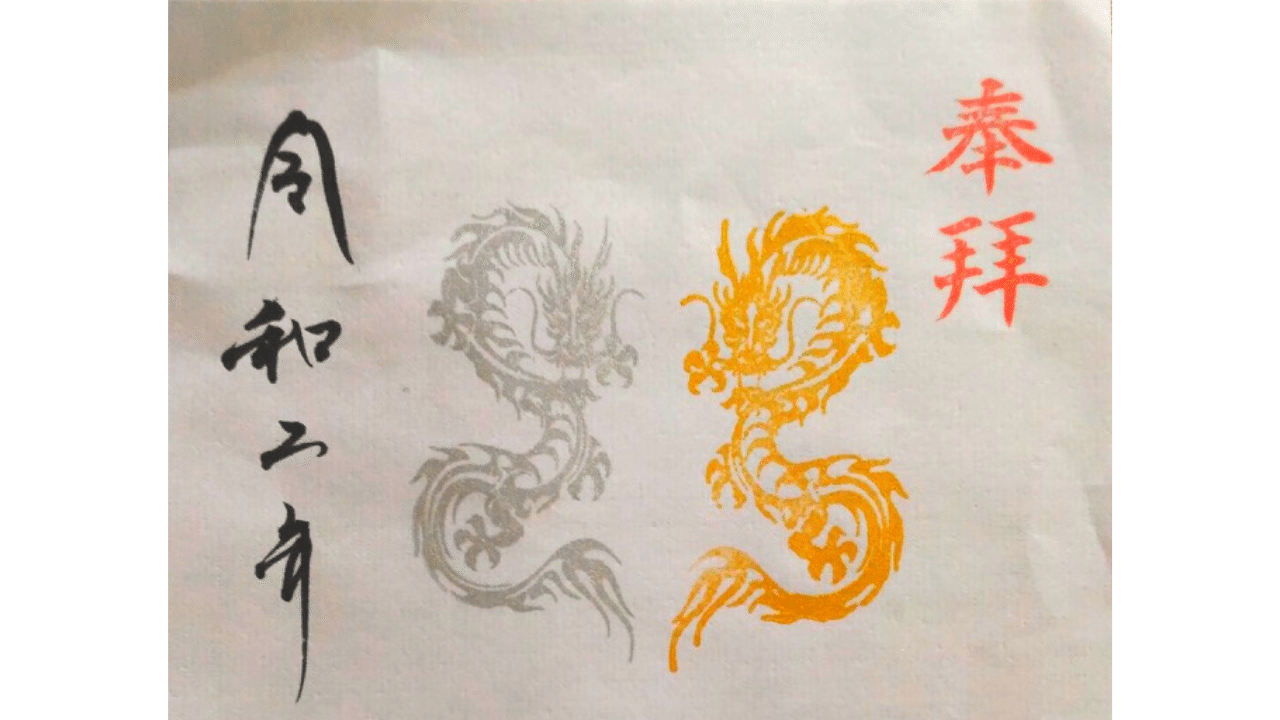 奉拝
令和二年